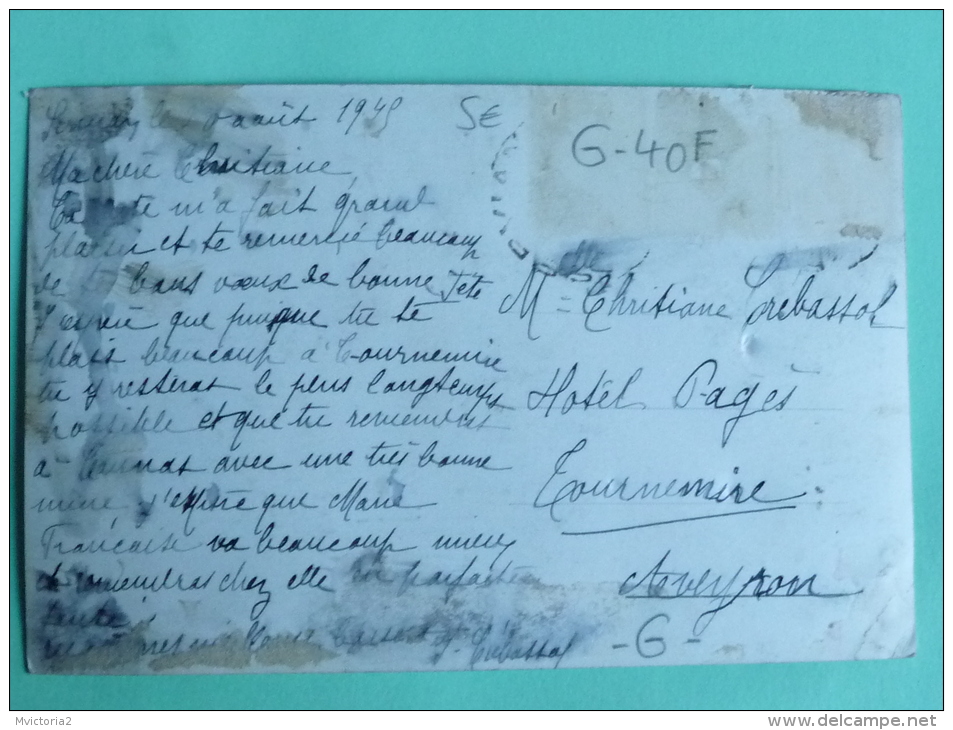 le août 1945
5€
G-40F
Ma chère Christiane
m'a fait grand
plaisir et te remercie beaucoup
de bons vœux de bonne fête
J'espère que puisque tu te
plais beaucoup à Tournemire
tu y resteras le plus longtemps
possible et que tu
à avec une très bonne
mine j'espère que Marie
Françoise va beaucoup mieux
chez elle en parfaite
santé
Trébassol
Mlle Christiane Trébassol
Hotel Pagès
Tournemire
Aveyron
-G-
Mvictoria2
www.delcampe.net